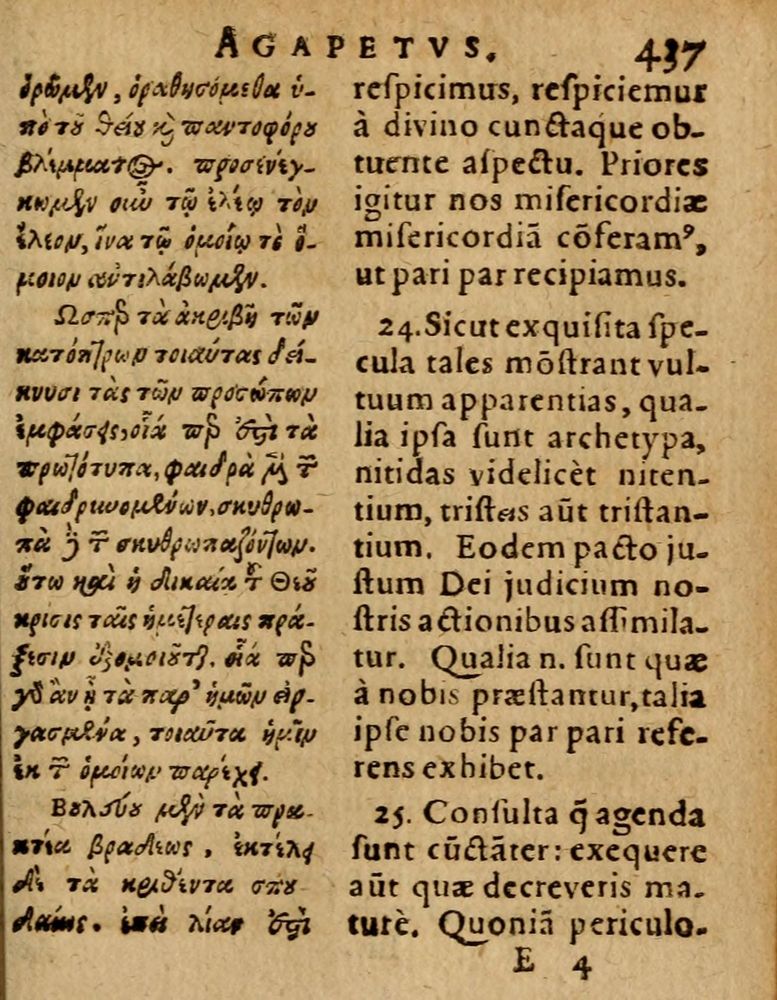 AGAPETVS. 437
ὁρῶμεν, ὁραθησόμεθα ὑ-
πὸ τοῦ θείου καὶ παντοφόρου
βλέμματος. προσενέγ-
κωμεν οὖν τῷ ἐλέῳ τὸν
ἔλεον, ἵνα τῷ ὁμοίῳ τὸ ὅ-
μοιον ἀντιλάβωμεν.
Ωσπερ τὰ ἀκριβῆ τῶν
κατόπτρων τοιαύτας δεί-
κνυσι τὰς τῶν προσώπων
ἐμφάσεις, οἷά περ ἐστὶ τὰ
πρωτότυπα, φαιδρὰ μὲν τῶν
φαιδρυνομένων, σκυθρω-
πὰ δὲ τῶν σκυθρωπαζόντων.
οὕτω καὶ ἡ δικαία τοῦ Θεοῦ
κρίσις ταῖς ἡμετέραις πρά-
ξεσιν ἐξομοιοῦται. οἷά περ
γὰρ ἂν ᾖ τὰ παρ' ἡμῶν εἰρ-
γασμένα, τοιαῦτα ἡμῖν
ἐκ τῶν ὁμοίων παρέχει.
Βουλεύου μὲν τὰ πρα-
κτέα βραδέως, ἐκτέλει
δὲ τὰ κριθέντα σπου
δαίως. ἐπεὶ λίαν ἐστὶ
reſpicimus, reſpiciemur
à divino cunctaque ob-
tuente aſpectu. Priores
igitur nos miſericordiæ
miſericordiā cōferamꝰ,
ut pari par recipiamus.
24. Sicut exquiſita ſpe-
cula tales mōſtrant vul-
tuum apparentias, qua-
lia ipſa ſunt archetypa,
nitidas videlicèt niten-
tium, triſteis aūt triſtan-
tium. Eodem pacto ju-
ſtum Dei judicium no-
ſtris actionibus aſſimila-
tur. Qualia n. ſunt quæ
à nobis præſtantur, talia
ipſe nobis par pari refe-
rens exhibet.
25. Conſulta q̄ agenda
ſunt cūctāter: exequere
aūt quæ decreveris ma-
turè. Quoniā periculo-
E 4